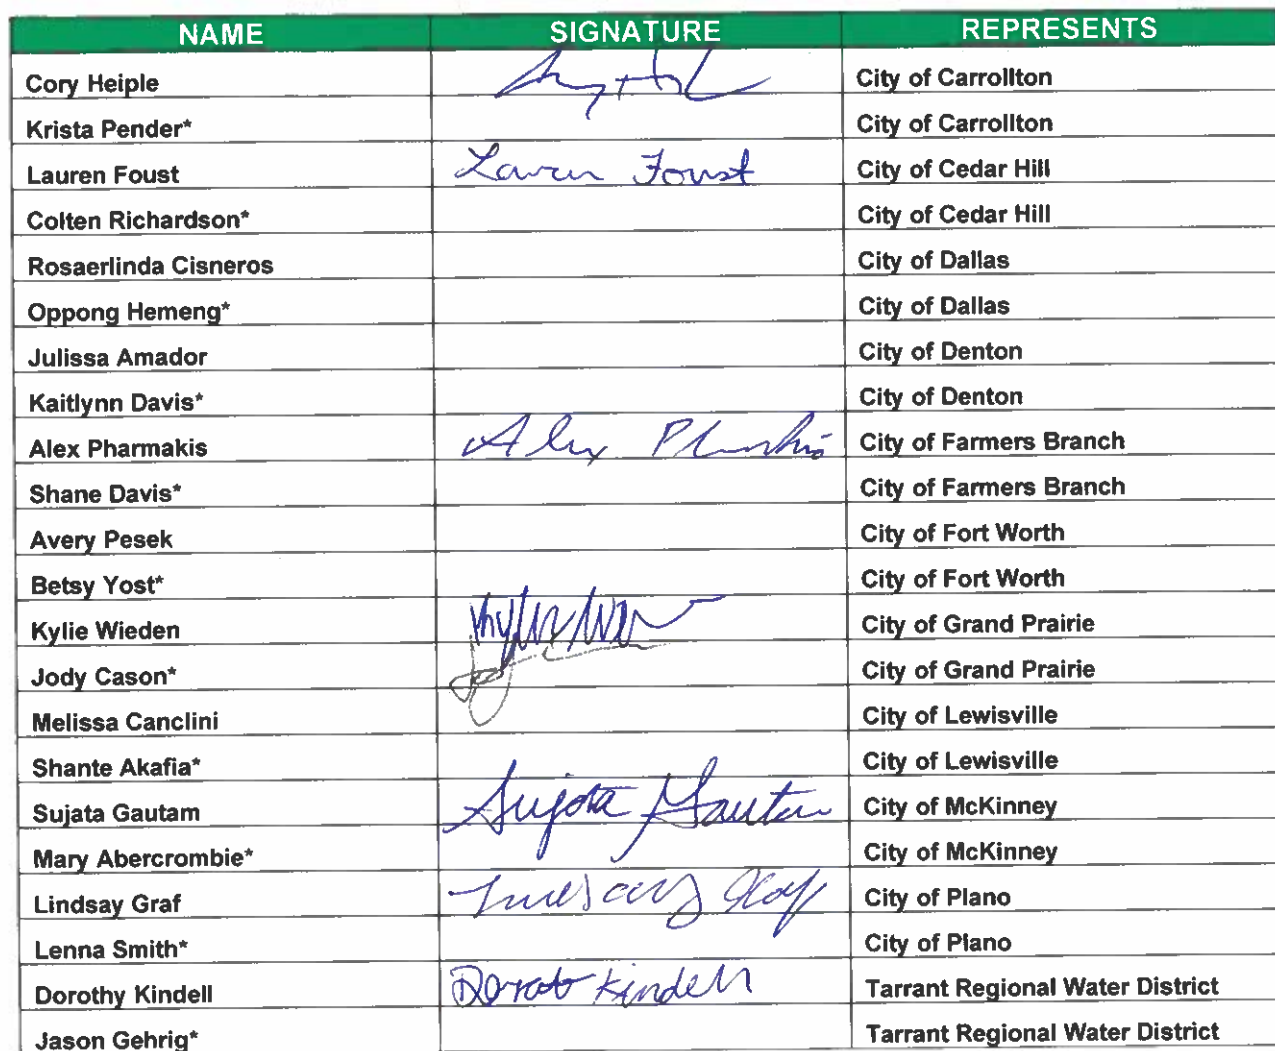 NAME SIGNATURE REPRESENTS
Cory Heiple City of Carrollton
Krista Pender* City of Carrollton
Lauren Foust Lauren Foust City of Cedar Hill
Colten Richardson* City of Cedar Hill
Rosaerlinda Cisneros City of Dallas
Oppong Hemeng* City of Dallas
Julissa Amador City of Denton
Kaitlynn Davis* City of Denton
Alex Pharmakis Alex City of Farmers Branch
Shane Davis* City of Farmers Branch
Avery Pesek City of Fort Worth
Betsy Yost* City of Fort Worth
Kylie Wieden City of Grand Prairie
Jody Cason* City of Grand Prairie
Melissa Canclini City of Lewisville
Shante Akafia* City of Lewisville
Sujata Gautam Sujata Gautam City of McKinney
Mary Abercrombie* City of McKinney
Lindsay Graf Lindsay Graf City of Plano
Lenna Smith* City of Plano
Dorothy Kindell Kindell Tarrant Regional Water District
Jason Gehrig* Tarrant Regional Water District